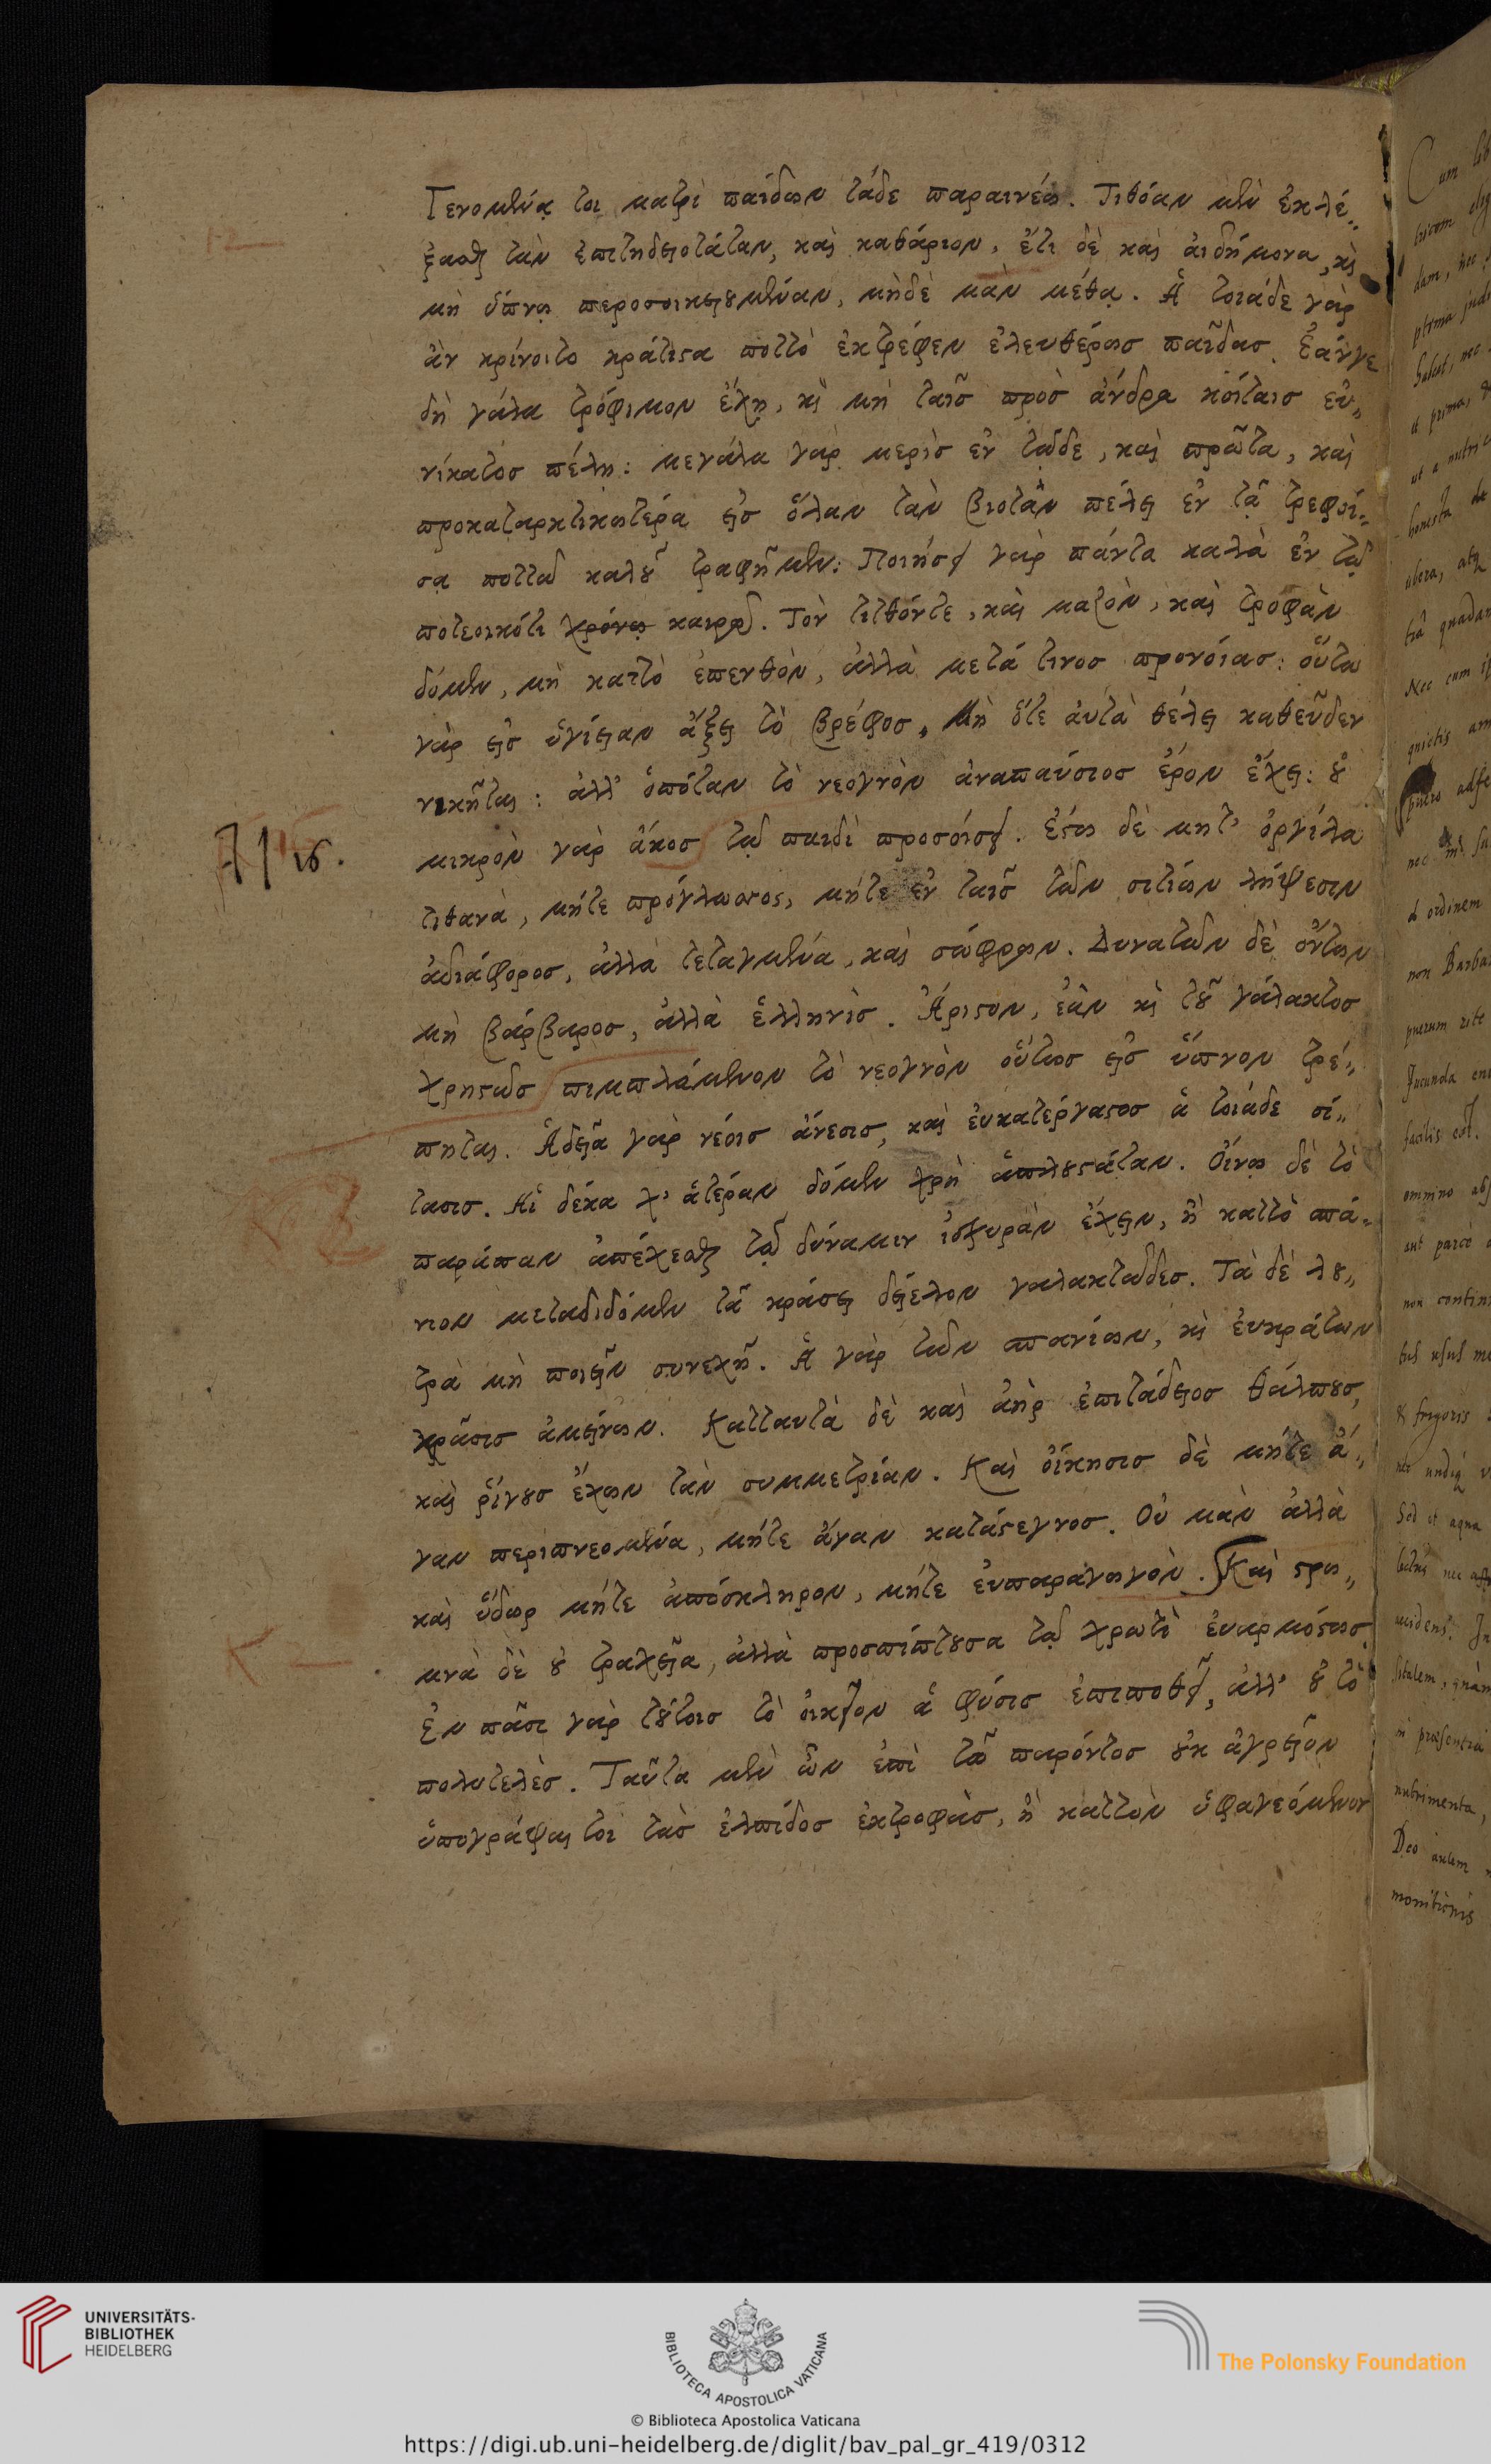 Γενομένᾳ τοι ματρὶ παίδων τάδε παραινέω. Τιθάαν μὲν ἐκλέ-
ξασθαι τὰν ἐπιτηδειοτάταν, καὶ καθάριον, ἔτι δὲ καὶ αἰδήμονα, καὶ
μὴ ὕπνῳ περοσοικειουμέναν, μηδὲ μὰν μέθᾳ. Ἁ τοιάδε γὰρ
ἂν κρίνοιτο κράτιστα ποττὸ ἐκτρέφεν ἐλευθέρως παῖδας. Ἐάνγε
δὴ γάλα τρόφιμον ἔχῃ, καὶ μὴ ταῖς πρὸς ἄνδρα κοίταις εὐ-
νίκατος πέλῃ: μεγάλα γὰρ μερὶς ἐν τῷδε, καὶ πρῶτα, καὶ
προκαταρκτικωτέρα εἰς ὅλαν τὰν βιοτὰν πέλει ἐν τᾷ τρεφοί-
σᾳ ποττῶ καλοῦ τραφῆμεν: Ποιήσει γὰρ πάντα καλὰ ἐν τῷ
ποτεοικότι χρόνῳ καιρῷ. Τὸν τιτθόντε, καὶ μαζὸν, καὶ τροφὰν
δόμεν, μὴ καττὸ ἐπενθὸν, ἀλλὰ μετά τινος προνοίας: οὕτω
γὰρ εἰς ὑγίειαν ἄξει τὸ βρέφος. Μὴ ὅτε αὐτὰ θέλει καθεῦδεν
νικῆται: ἀλλ' ὁπόταν τὸ νεογνὸν ἀναπαύσιος ἔρον ἔχει: οὐ
μικρὸν γὰρ ἄκος τῷ παιδὶ προσοίσει. Ἔστω δὲ μητ' ὀργίλα
τιθανὰ, μήτε πρόγλωσσος, μήτε ἐν ταῖς τῶν σιτίων λήψεσιν
ἀδιάφορος, ἀλλὰ τεταγμένα, καὶ σώφρων. Δυνατῶν δὲ ὄντων
μὴ βάρβαρος, ἀλλὰ ἑλληνὶς. Ἄριστον, ἐὰν καὶ τοῦ γάλακτος
χρηστῶς πιμπλάμενον τὸ νεογνὸν οὕτως εἰς ὕπνον τρέ-
πηται. Ἁδεῖα γὰρ νέοις ἄνεσις, καὶ εὐκατέργαστος ἁ τοιάδε σί-
τασις. Αἰ δέκα χ' ἁτέραν δόμεν χρὴ ἁπλουστάταν. Οἴνῳ δὲ τὸ
παράπαν ἀπέχεσθαι τῷ δύναμιν ἰσχυρὰν ἔχειν, ἢ καττὸ σπά-
νιον μεταδιδόμεν τᾷ κράσει δείελον γαλακτῶδες. Τὰ δὲ λου-
τρὰ μὴ ποιεῖν συνεχῆ. Ἁ γὰρ τῶν σπανίων, καὶ εὐκράτων
κρᾶσις ἀμείνων. Κατταυτὰ δὲ καὶ ἀὴρ ἐπιτάδειος θάλπους,
καὶ ῥίγους ἔχων τὰν συμμετρίαν. Καὶ οἴκησις δὲ μήτε ἄ-
γαν περιπνεομένα, μήτε ἄγαν κατάστεγνος. Οὐ μὰν ἀλλὰ
καὶ ὕδωρ μήτε ἀπόσκληρον, μήτε εὐπαράγωγον. Καὶ στρω-
μνὰ δὲ οὐ τραχεῖα, ἀλλὰ προσπίπτουσα τῷ χρωτὶ εὐαρμόστως.
Ἐν πᾶσι γὰρ τούτοις τὸ οἰκεῖον ἁ φύσις ἐπιποθεῖ, ἀλλ' οὐ τὸ
πολυτελές. Ταῦτα μὲν ὦν ἐπὶ τῶ παρόντος οὐκ ἀχρεῖον
ὑπογράψαι τοι τὰς ἐλπίδος ἐκτροφὰς, ἢ καττὸν ὑφαγεόμενον
A I 16.
UNIVERSITÄTS-
BIBLIOTHEK
HEIDELBERG
BIBLIOTECA APOSTOLICA VATICANA
The Polonsky Foundation
© Biblioteca Apostolica Vaticana
https://digi.ub.uni-heidelberg.de/diglit/bav_pal_gr_419/0312